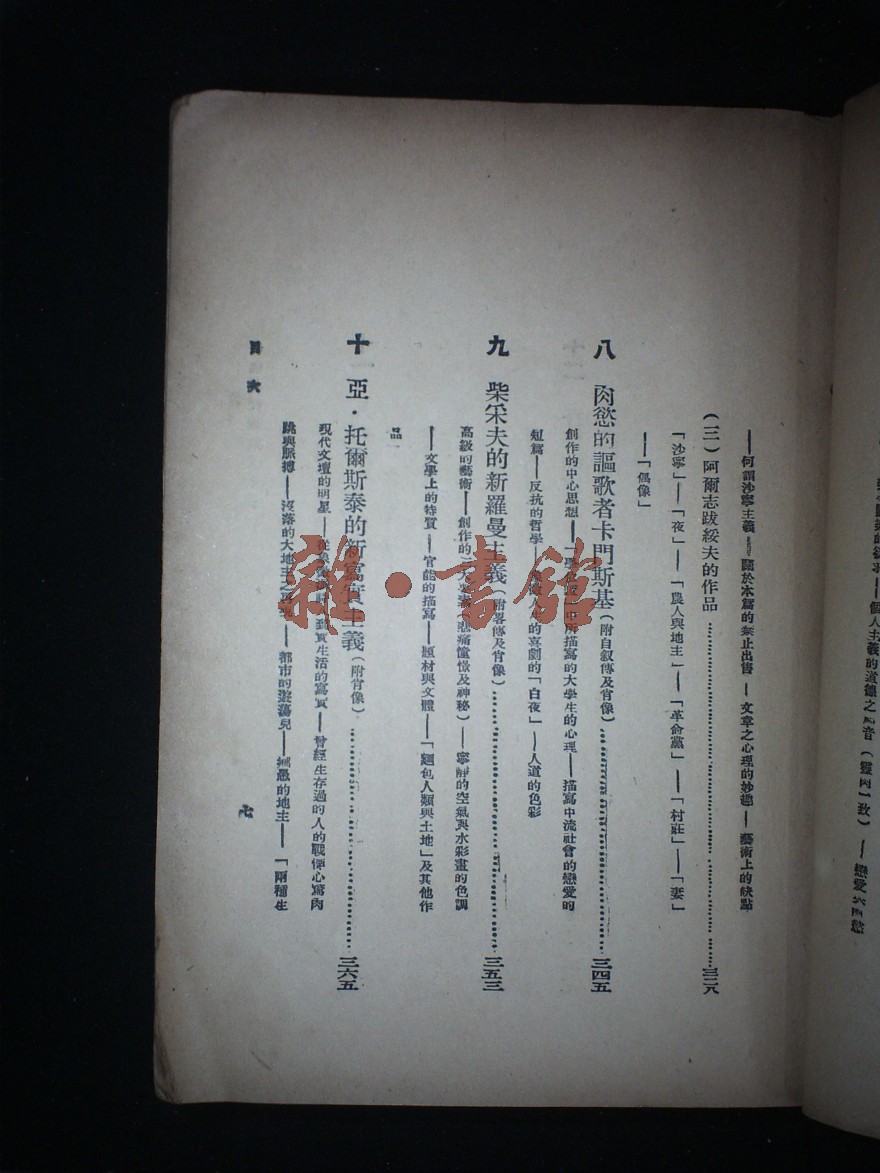 個人主義的道德之 音(靈肉一致)——戀愛
——何謂沙寧主義——關於本篇的禁止出售——文章之心理的妙趣——藝術上的缺點
(三)阿爾志跋綏夫的作品……三二八
「沙寧」——「夜」——「農人與地主」——「革命黨」——「村莊」——「妻」
——「偶像」
八 肉慾的謳歌者卡門斯基(附自叙傳及肖像)……三四五
創作的中心思想—— 描寫的大學生的心理——描寫中流社會的戀愛的
短篇——反抗的哲學—— 的喜劇的「白夜」——人道的色彩
九 柴采夫的新羅曼主義(附畧傳及肖像)……三五三
高級的藝術——創作的三大要素(悲痛憧憬及神秘)——寧靜的空氣與水彩畫的色調
——文學上的特質——官能的描寫——題材與文體——「麵包人類與土地」及其他作
品
十 亞·托爾斯泰的新寫實主義(附肖像)……三六五
現代文壇的明星——從 到實生活的寫實——曾經生存過的人的戰慄心驚肉
跳與脈搏——沒落的大地主之再現——都市的遊蕩兒—— 愚的地主——「兩種生
目次
七
雜·書館